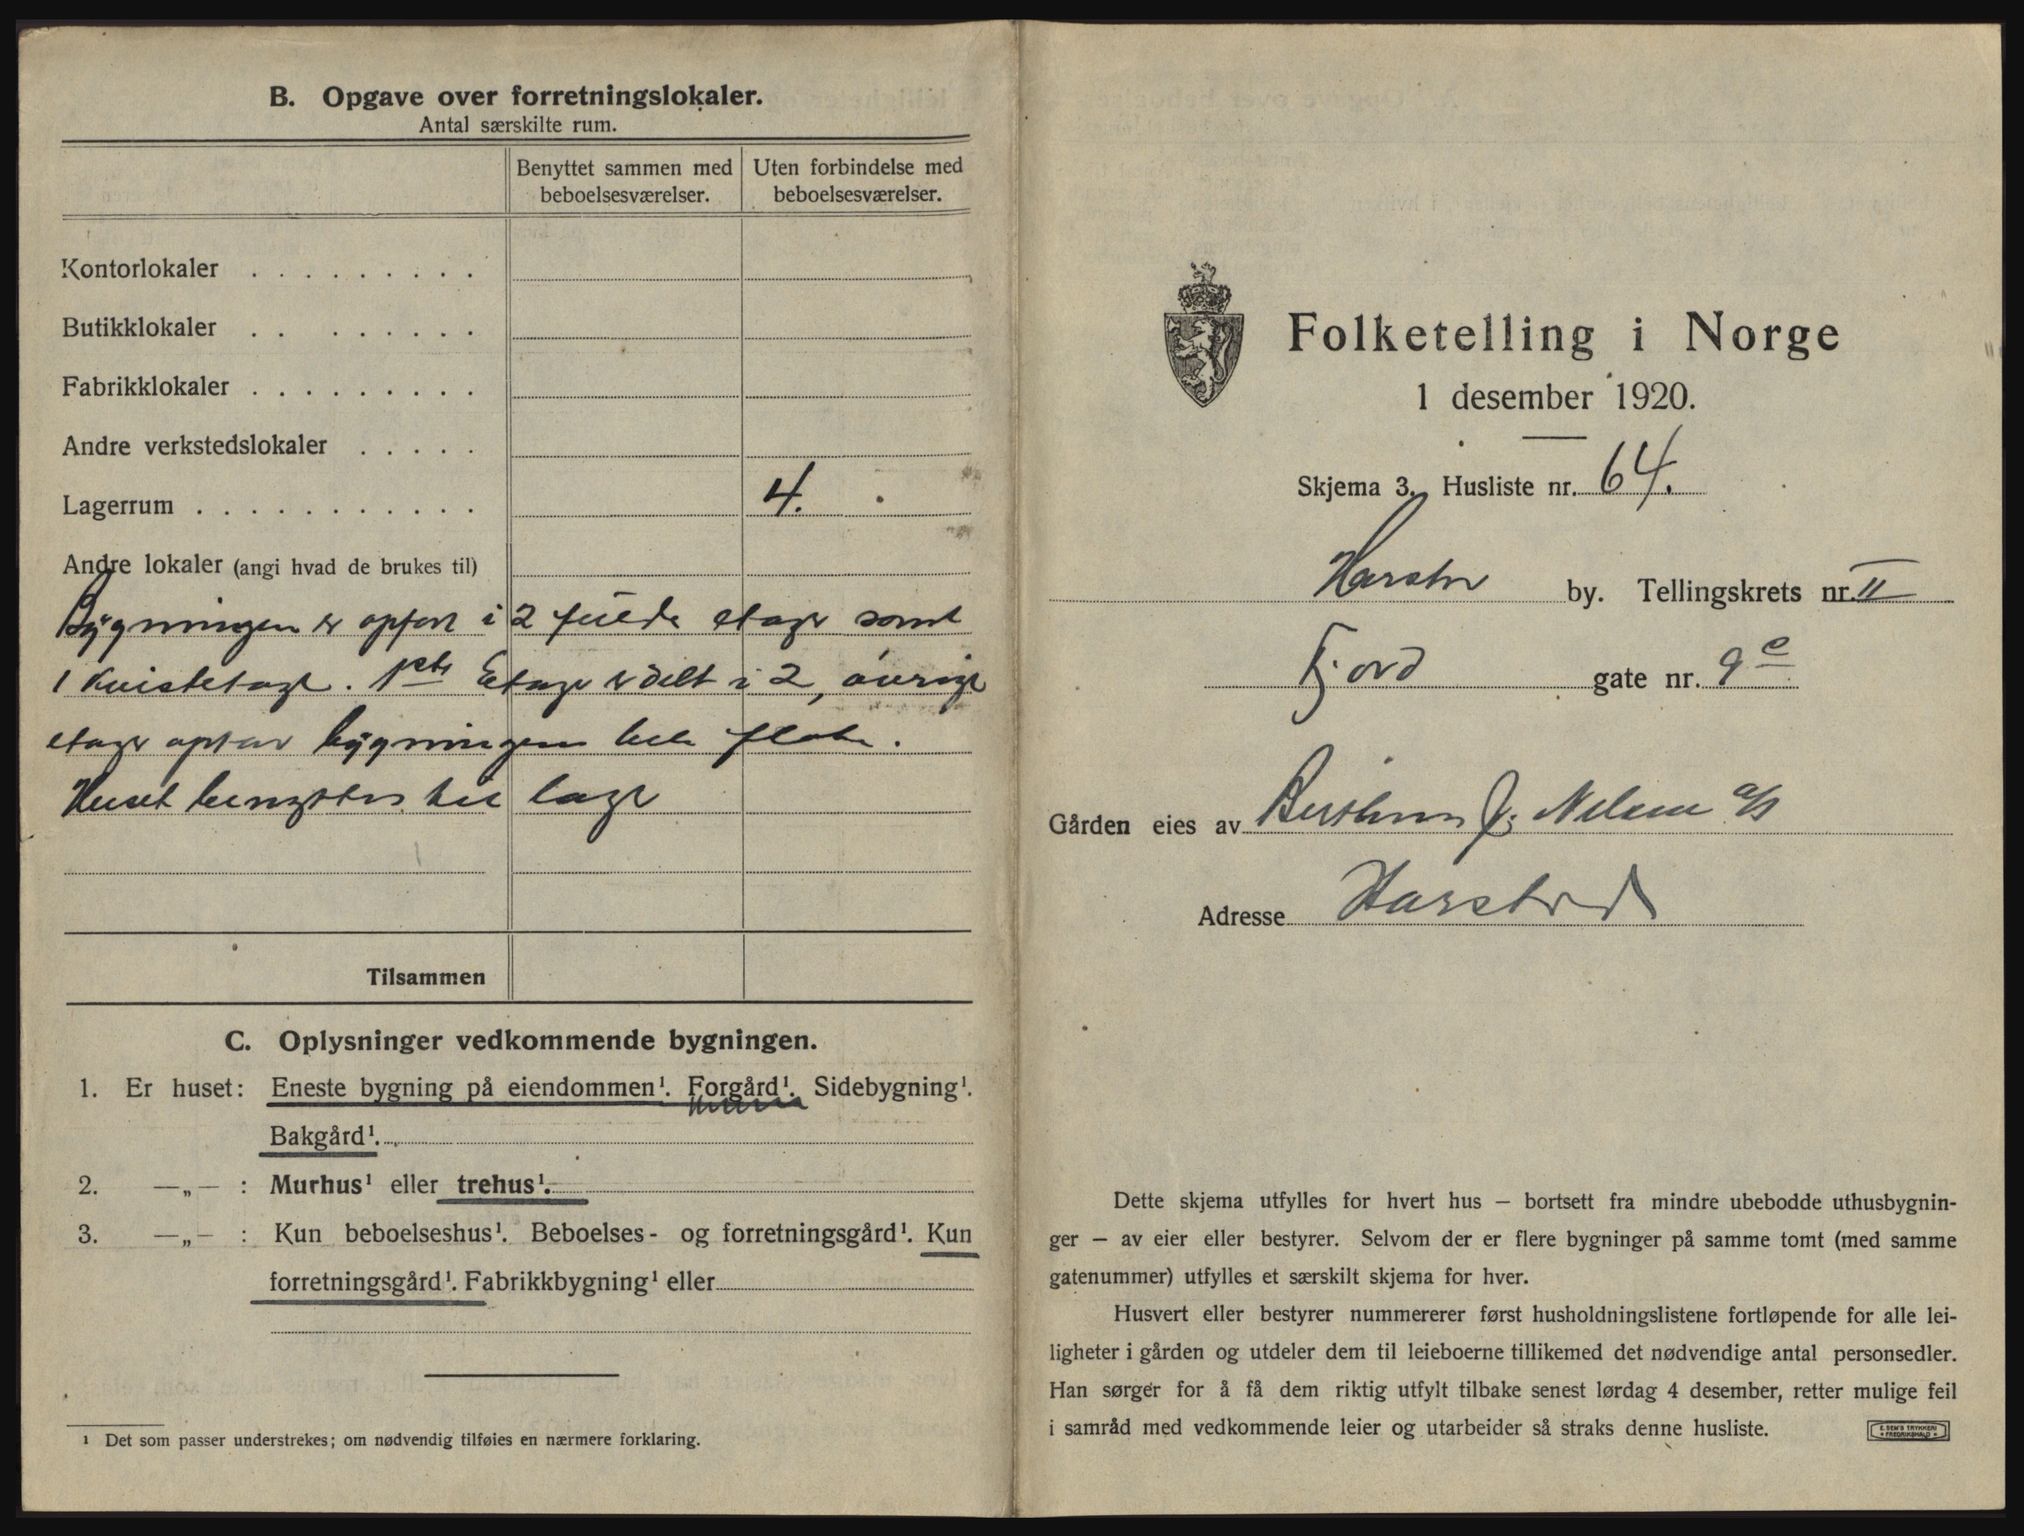 B. Opgave over forretningslokaler.
Antal særskilte rum.
Benyttet sammen med beboelsesværelser.
Uten forbindelse med beboelsesværelser.
Kontorlokaler . . . . . . . . .
Butikklokaler . . . . . . . .
Fabrikklokaler . . . . . . . . .
Andre verkstedslokaler . . . . .
Lagerrum . . . . . . . . . . . 4.
Andre lokaler (angi hvad de brukes til)
Bygningen er opført i 2 fulde etager samt
1 kvistetage. 1ste Etage er delt i 2, øvrige
etager optar bygningens hele flate.
Huset benyttes til lager
Tilsammen
C. Oplysninger vedkommende bygningen.
1. Er huset: Eneste bygning på eiendommen¹. Forgård¹. Sidebygning¹.
Bakgård¹.
2. —„— : Murhus¹ eller trehus¹.
3. —„— : Kun beboelseshus¹. Beboelses- og forretningsgård¹. Kun
forretningsgård¹. Fabrikkbygning¹ eller
¹ Det som passer understrekes; om nødvendig tilføies en nærmere forklaring.
Folketelling i Norge
1 desember 1920.
Skjema 3. Husliste nr. 64.
by. Tellingskrets nr. II
Fjord gate nr. 9c
Gården eies av J. Nilsen a/s
Adresse Harstad
Dette skjema utfylles for hvert hus — bortsett fra mindre ubebodde uthusbygnin-
ger — av eier eller bestyrer. Selvom der er flere bygninger på samme tomt (med samme
gatenummer) utfylles et særskilt skjema for hver.
Husvert eller bestyrer nummererer først husholdningslistene fortløpende for alle lei-
ligheter i gården og utdeler dem til leieboerne tillikemed det nødvendige antal personsedler.
Han sørger for å få dem riktig utfylt tilbake senest lørdag 4 desember, retter mulige feil
i samråd med vedkommende leier og utarbeider så straks denne husliste.
E. SEM'S TRYKKERI
FREDRIKSHALD